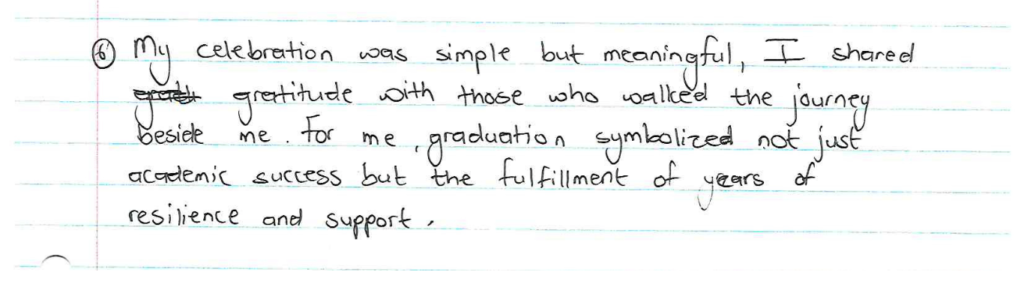 ⑥ My celebration was simple but meaningful, I shared
gratitude with those who walked the journey
beside me. For me, graduation symbolized not just
academic success but the fulfillment of years of
resilience and support.